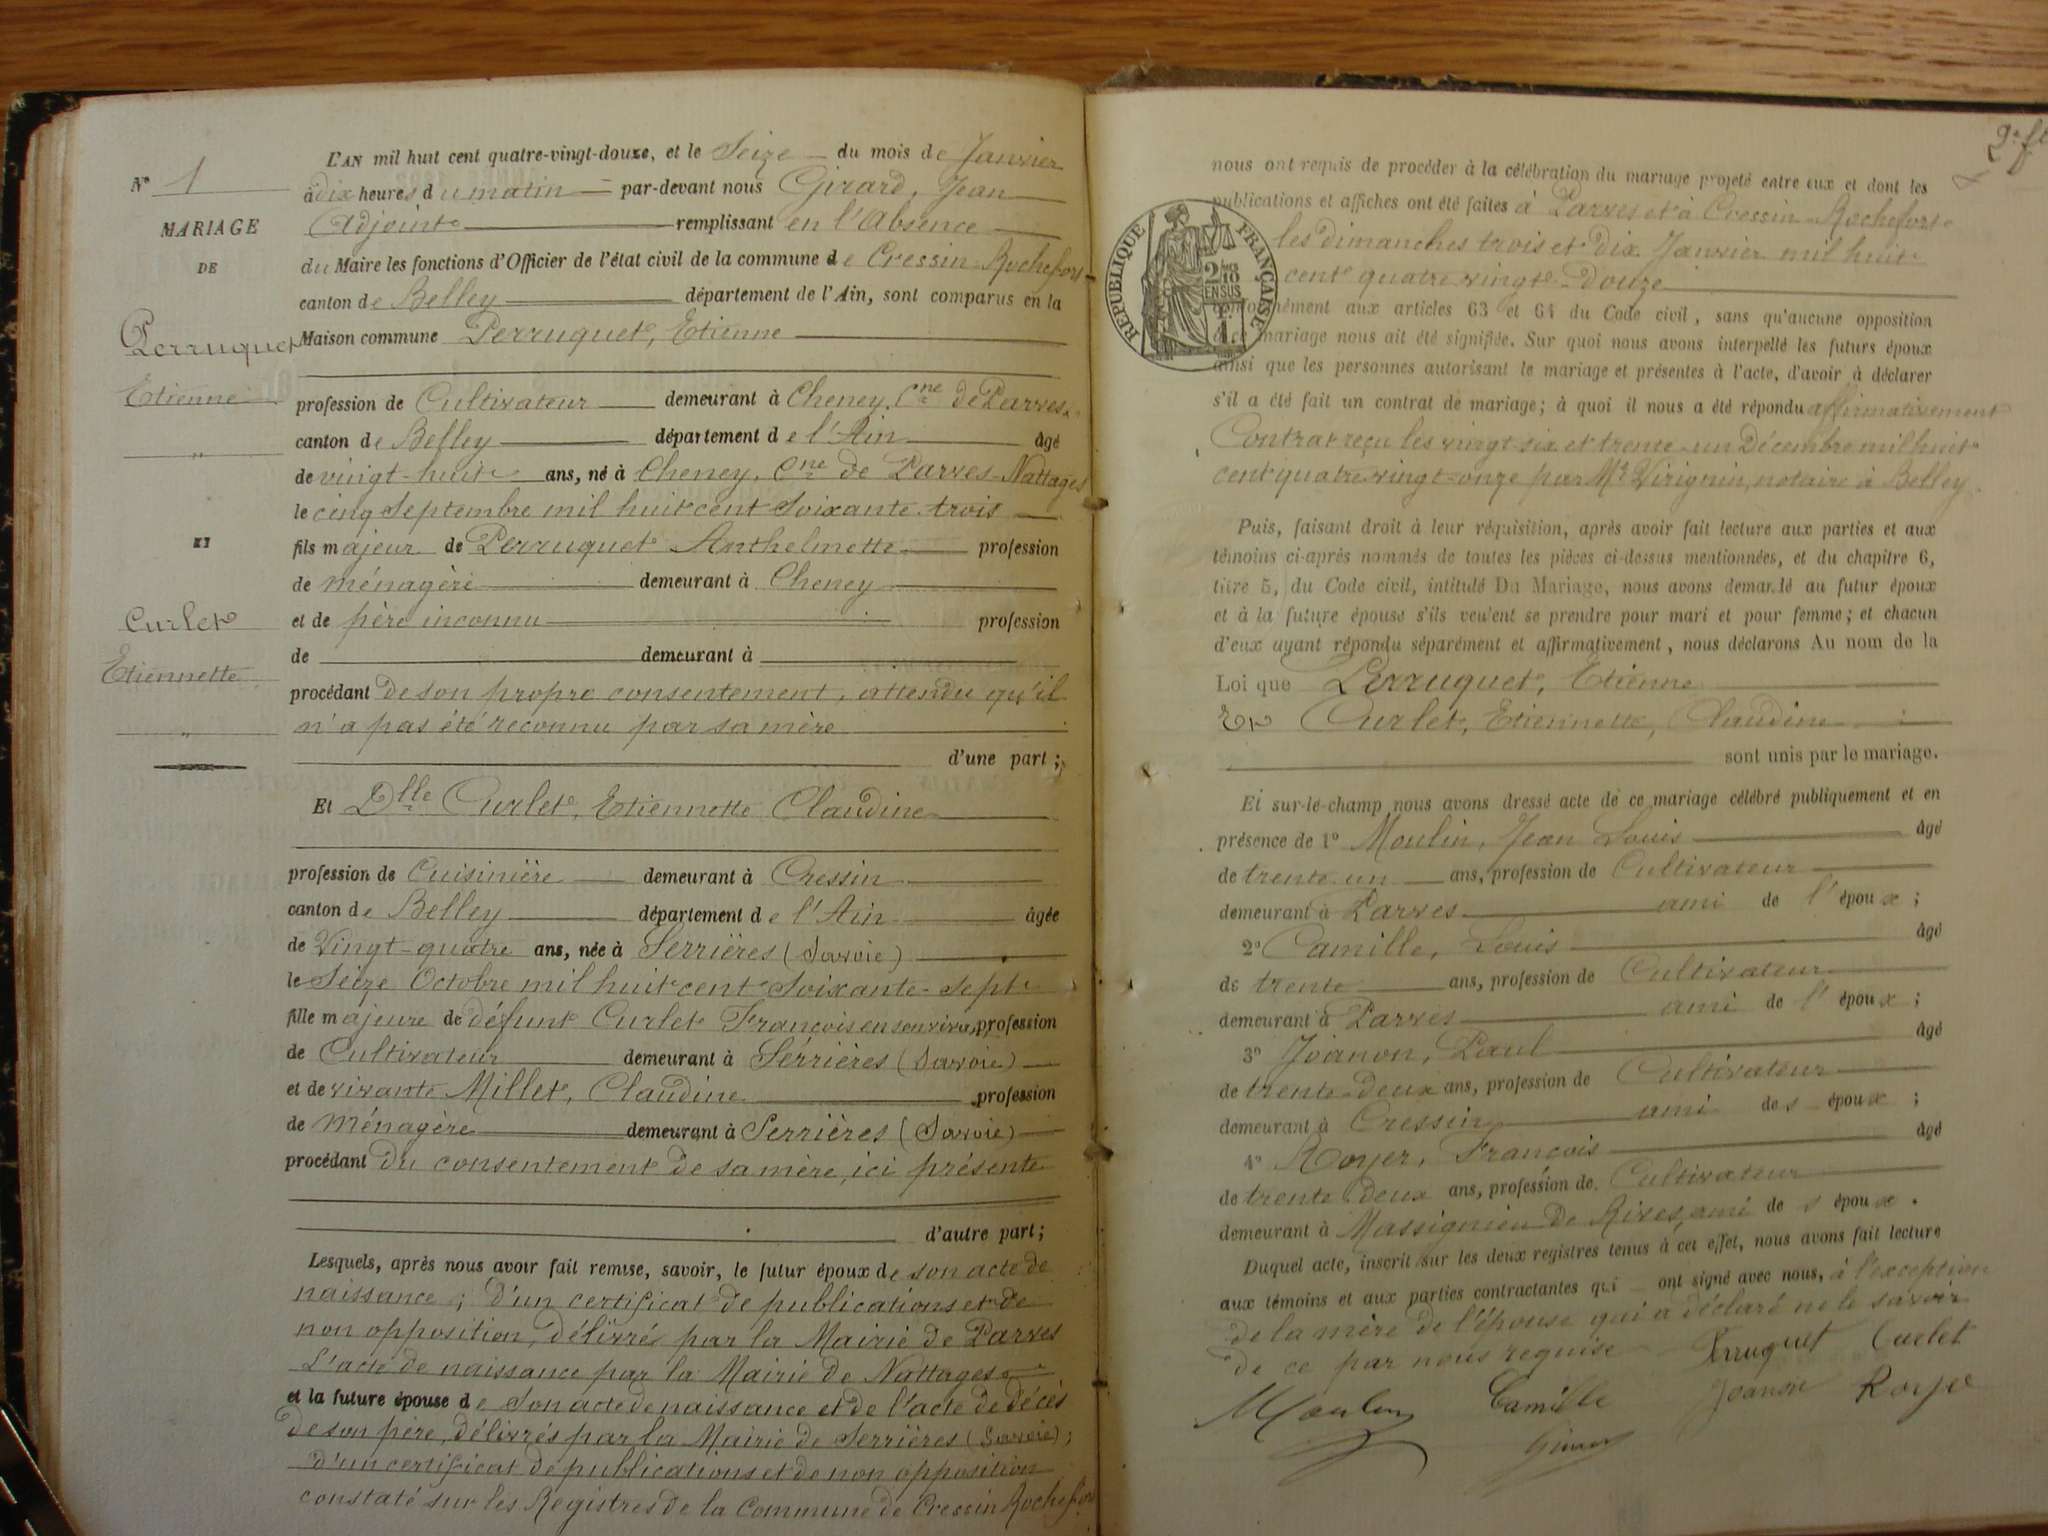 N° 1
MARIAGE
DE
Perruquet
Etienne
"
"
Curlet
Etiennette
"
L'AN mil huit cent quatre-vingt-douze, et le Seize du mois de Janvier
à dix heures du matin par-devant nous Girard, Jean
Adjoint remplissant en l'Absence
du Maire les fonctions d'Officier de l'état civil de la commune de Cressin-Rochefort
canton de Belley département de l'Ain, sont comparus en la
Maison commune Perruquet, Etienne
profession de Cultivateur demeurant à Cheney, Cne de Parves
canton de Belley département de l'Ain âgé
de vingt-huit ans, né à Cheney, Cne de Parves-Nattages
le cinq Septembre mil huit cent soixante-trois
fils majeur de Perruquet Anthelmette profession
de ménagère demeurant à Cheney
et de père inconnu profession
de demeurant à
procédant de son propre consentement, attendu qu'il
n'a pas été reconnu par sa mère
d'une part ;
Et Dlle Curlet, Etiennette Claudine
profession de Cuisinière demeurant à Cressin
canton de Belley département de l'Ain âgée
de Vingt-quatre ans, née à Serrières (Savoie)
le Seize Octobre mil huit cent Soixante-Sept
fille majeure de défunt Curlet François en son vivant, profession
de Cultivateur demeurant à Serrières (Savoie)
et de vivante Millet, Claudine profession
de Ménagère demeurant à Serrières (Savoie)
procédant du consentement de sa mère, ici présente
d'autre part ;
Lesquels, après nous avoir fait remise, savoir, le futur époux de son acte de
naissance ; d'un certificat de publications et de
non opposition, délivrés par la Mairie de Parves
L'acte de naissance par la Mairie de Nattages
et la future épouse de Son acte de naissance et de l'acte de décès
de son père, délivrés par la Mairie de Serrières (Savoie) ;
d'un certificat de publications et de non opposition
constaté sur les Registres de la Commune de Cressin Rochefort
2e ft
nous ont requis de procéder à la célébration du mariage projeté entre eux et dont les
publications et affiches ont été faites à Parves et à Cressin-Rochefort
les dimanches trois et dix Janvier mil huit
cent quatre vingt-douze
conformément aux articles 63 et 64 du Code civil, sans qu'aucune opposition
à ce mariage nous ait été signifiée. Sur quoi nous avons interpellé les futurs époux
ainsi que les personnes autorisant le mariage et présentes à l'acte, d'avoir à déclarer
s'il a été fait un contrat de mariage ; à quoi il nous a été répondu affirmativement
Contrat reçu les vingt six et trente-un Décembre mil huit
cent quatre vingt-onze par Me Virignin, notaire à Belley.
RÉPUBLIQUE FRANÇAISE
2/10 EN SUS
1
Puis, faisant droit à leur réquisition, après avoir fait lecture aux parties et aux
témoins ci-après nommés de toutes les pièces ci-dessus mentionnées, et du chapitre 6,
titre 5, du Code civil, intitulé Du Mariage, nous avons demandé au futur époux
et à la future épouse s'ils veulent se prendre pour mari et pour femme ; et chacun
d'eux ayant répondu séparément et affirmativement, nous déclarons Au nom de la
Loi que Perruquet, Etienne
Et Curlet, Etiennette, Claudine
sont unis par le mariage.
Et sur-le-champ nous avons dressé acte de ce mariage célébré publiquement et en
présence de 1° Moulin, Jean Louis âgé
de trente-un ans, profession de Cultivateur
demeurant à Parves ami de l'époux ;
2° Camille, Louis âgé
de trente ans, profession de Cultivateur
demeurant à Parves ami de l'époux ;
3° Joanon, Paul âgé
de trente-deux ans, profession de Cultivateur
demeurant à Cressin ami des époux ;
4° Royer, François âgé
de trente deux ans, profession de Cultivateur
demeurant à Massignieu de Rives, ami des époux.
Duquel acte, inscrit sur les deux registres tenus à cet effet, nous avons fait lecture
aux témoins et aux parties contractantes qui ont signé avec nous, à l'exception
de la mère de l'épouse qui a déclaré ne le savoir
de ce par nous requise Perruquet Curlet
Moulin Camille Joanon Royer
Girard